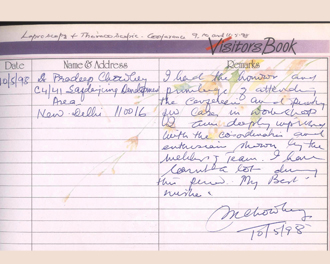 Laproscopy & Thoracoscopic Conference 9, 10 May 98
Visitors Book
Date
Name & Address
Remarks
10/5/98
Dr Pradeep Chowbey
C4/41 Safdarjung Development
Area
New Delhi 110016
I had the honour and
privilege of attending
the
for Cases in workshop
I am deeply impressed
with the coordination and
enthusiasm shown by the
Team. I have
learnt a lot during
this period. My Best
wishes.
PChowbey
10/5/98